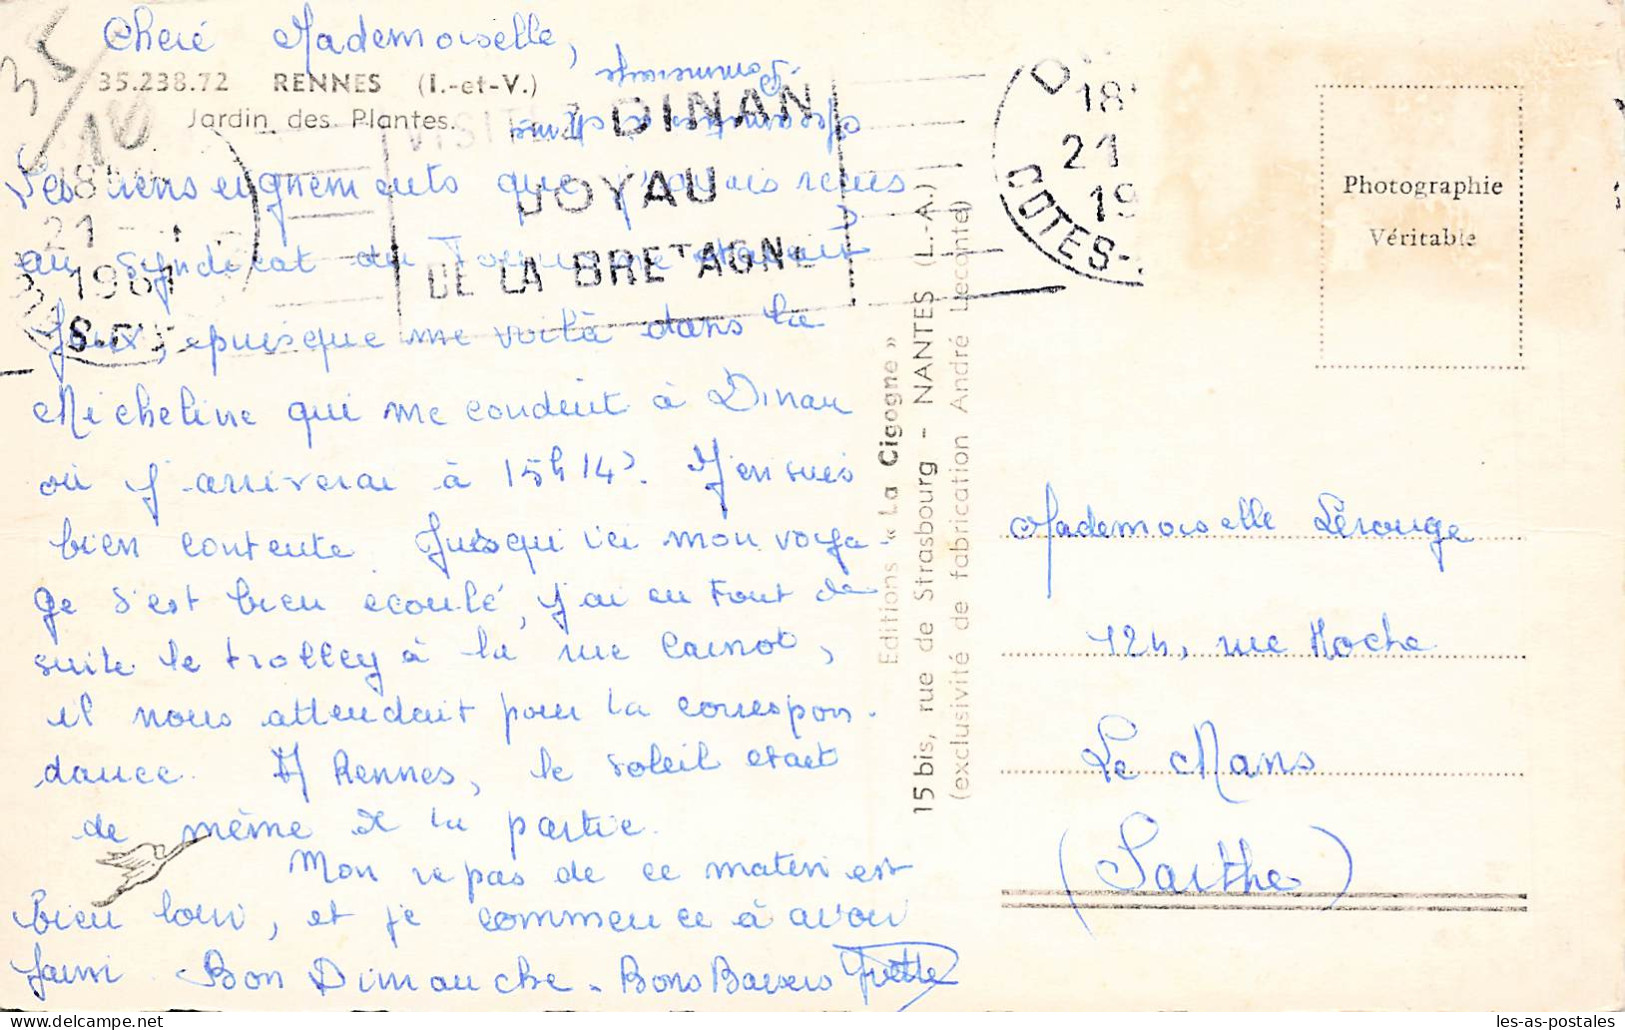 35/10
Cheré Mademoiselle,
35.238.72 RENNES (I.-et-V.)
Jardin des Plantes.
VISITEZ DINAN
JOYAU
DE LA BRETAGNE
Les renseignements que j'avais reçus
au Syndicat du Tourisme étaient
faux, puisque me voilà dans la
Micheline qui me conduit à Dinan
où j'arriverai à 15h14. J'en suis
bien contente. Jusqu'ici mon voya-
ge s'est bien écoulé, j'ai eu tout de
suite le trolley à la rue Carnot,
il nous attendait pour la correspon-
dance. A Rennes, le soleil était
de même de la partie.
Mon repas de ce matin est
bien loin, et je commence à avoir
faim. Bon Dimanche. Bons Baisers Yvette
18
21
1961
18
21
19
COTES-
Editions « La Cigogne »
15 bis, rue de Strasbourg - NANTES (L.-A.)
(exclusivité de fabrication André Leconte)
Photographie
Véritable
Mademoiselle Lerouge
124, rue Hoche
Le Mans
(Sarthe)
les-as-postales
www.delcampe.net